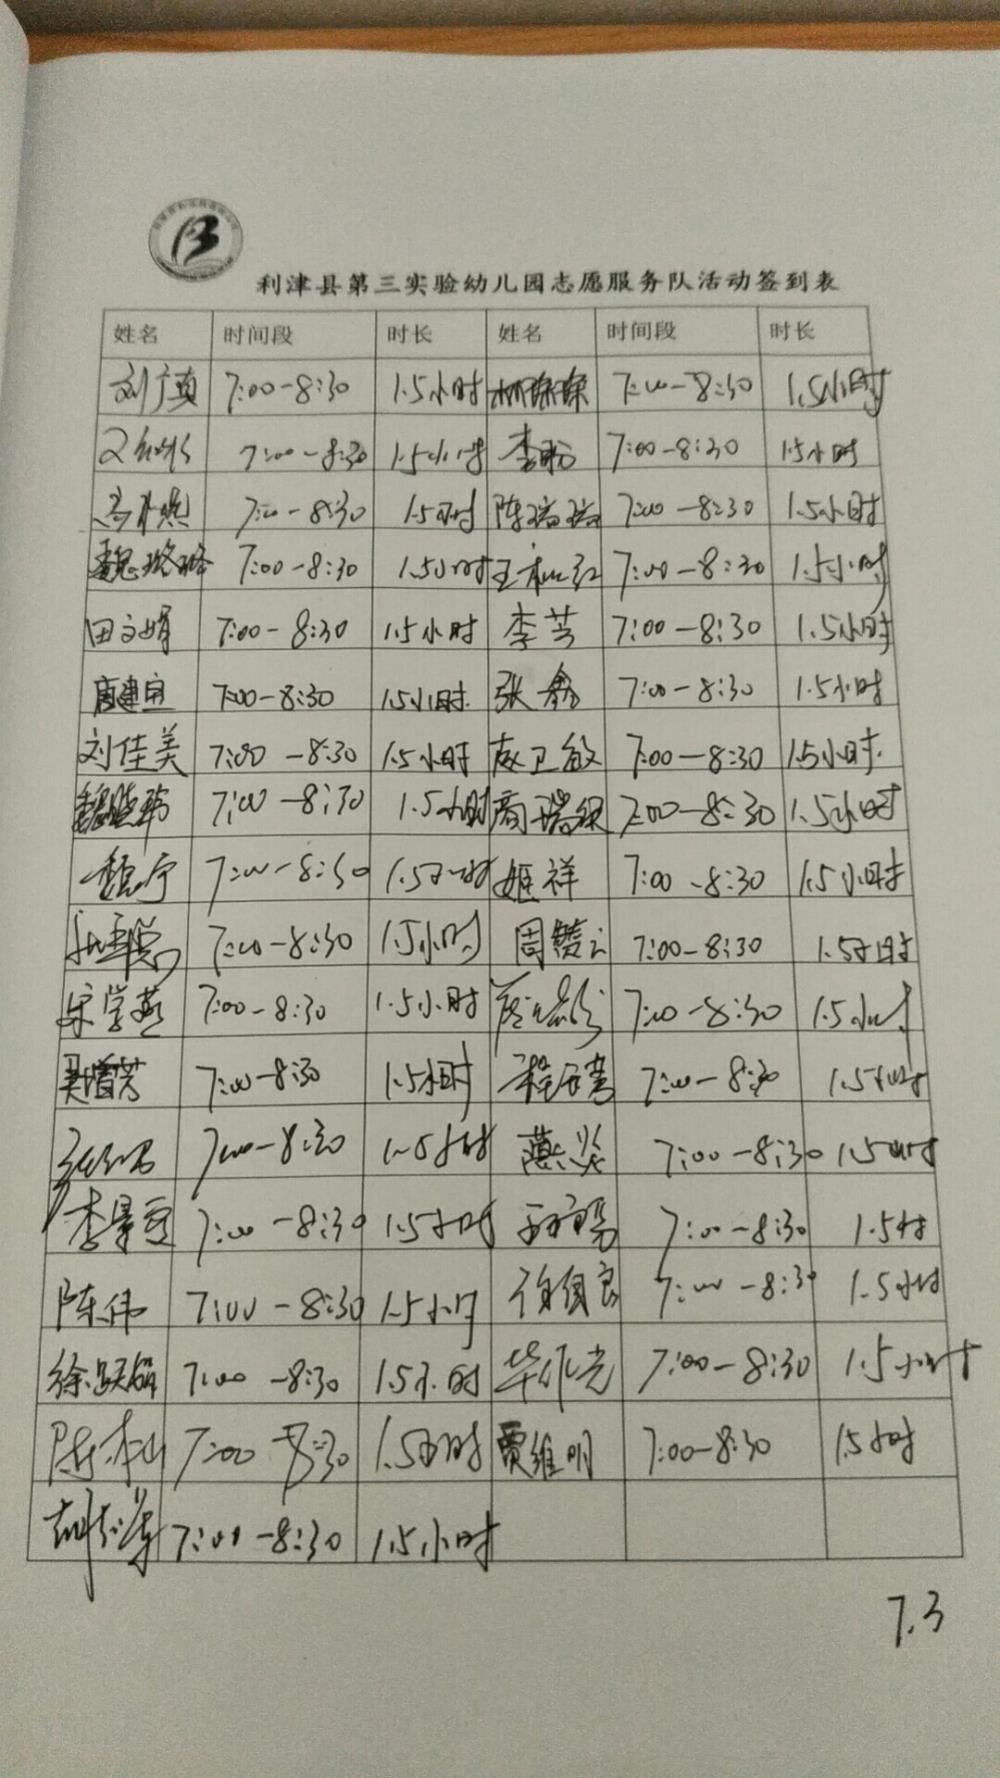 利津县第三实验幼儿园志愿服务队活动签到表
姓名 时间段 时长 姓名 时间段 时长
刘广真 7:00-8:30 1.5小时 7:00-8:30 1.5小时
7:00-8:30 1.5小时 李盼 7:00-8:30 1.5小时
7:00-8:30 1.5小时 陈瑞瑞 7:00-8:30 1.5小时
魏璐璐 7:00-8:30 1.5小时 王秋红 7:00-8:30 1.5小时
田文娟 7:00-8:30 1.5小时 李芳 7:00-8:30 1.5小时
唐建宝 7:00-8:30 1.5小时 张鑫 7:00-8:30 1.5小时
刘佳美 7:00-8:30 1.5小时 赵卫敏 7:00-8:30 1.5小时
魏晓韩 7:00-8:30 1.5小时 7:00-8:30 1.5小时
魏宁 7:00-8:30 1.5小时 姬祥 7:00-8:30 1.5小时
7:00-8:30 1.5小时 7:00-8:30 1.5小时
宋学燕 7:00-8:30 1.5小时 7:00-8:30 1.5小时
吴增芳 7:00-8:30 1.5小时 7:00-8:30 1.5小时
7:00-8:30 1.5小时 7:00-8:30 1.5小时
7:00-8:30 1.5小时 7:00-8:30 1.5时
陈伟 7:00-8:30 1.5小时 7:00-8:30 1.5小时
7:00-8:30 1.5小时 7:00-8:30 1.5小时
7:00-8:30 1.5小时 贾维明 7:00-8:30 1.5小时
7:00-8:30 1.5小时
7.3